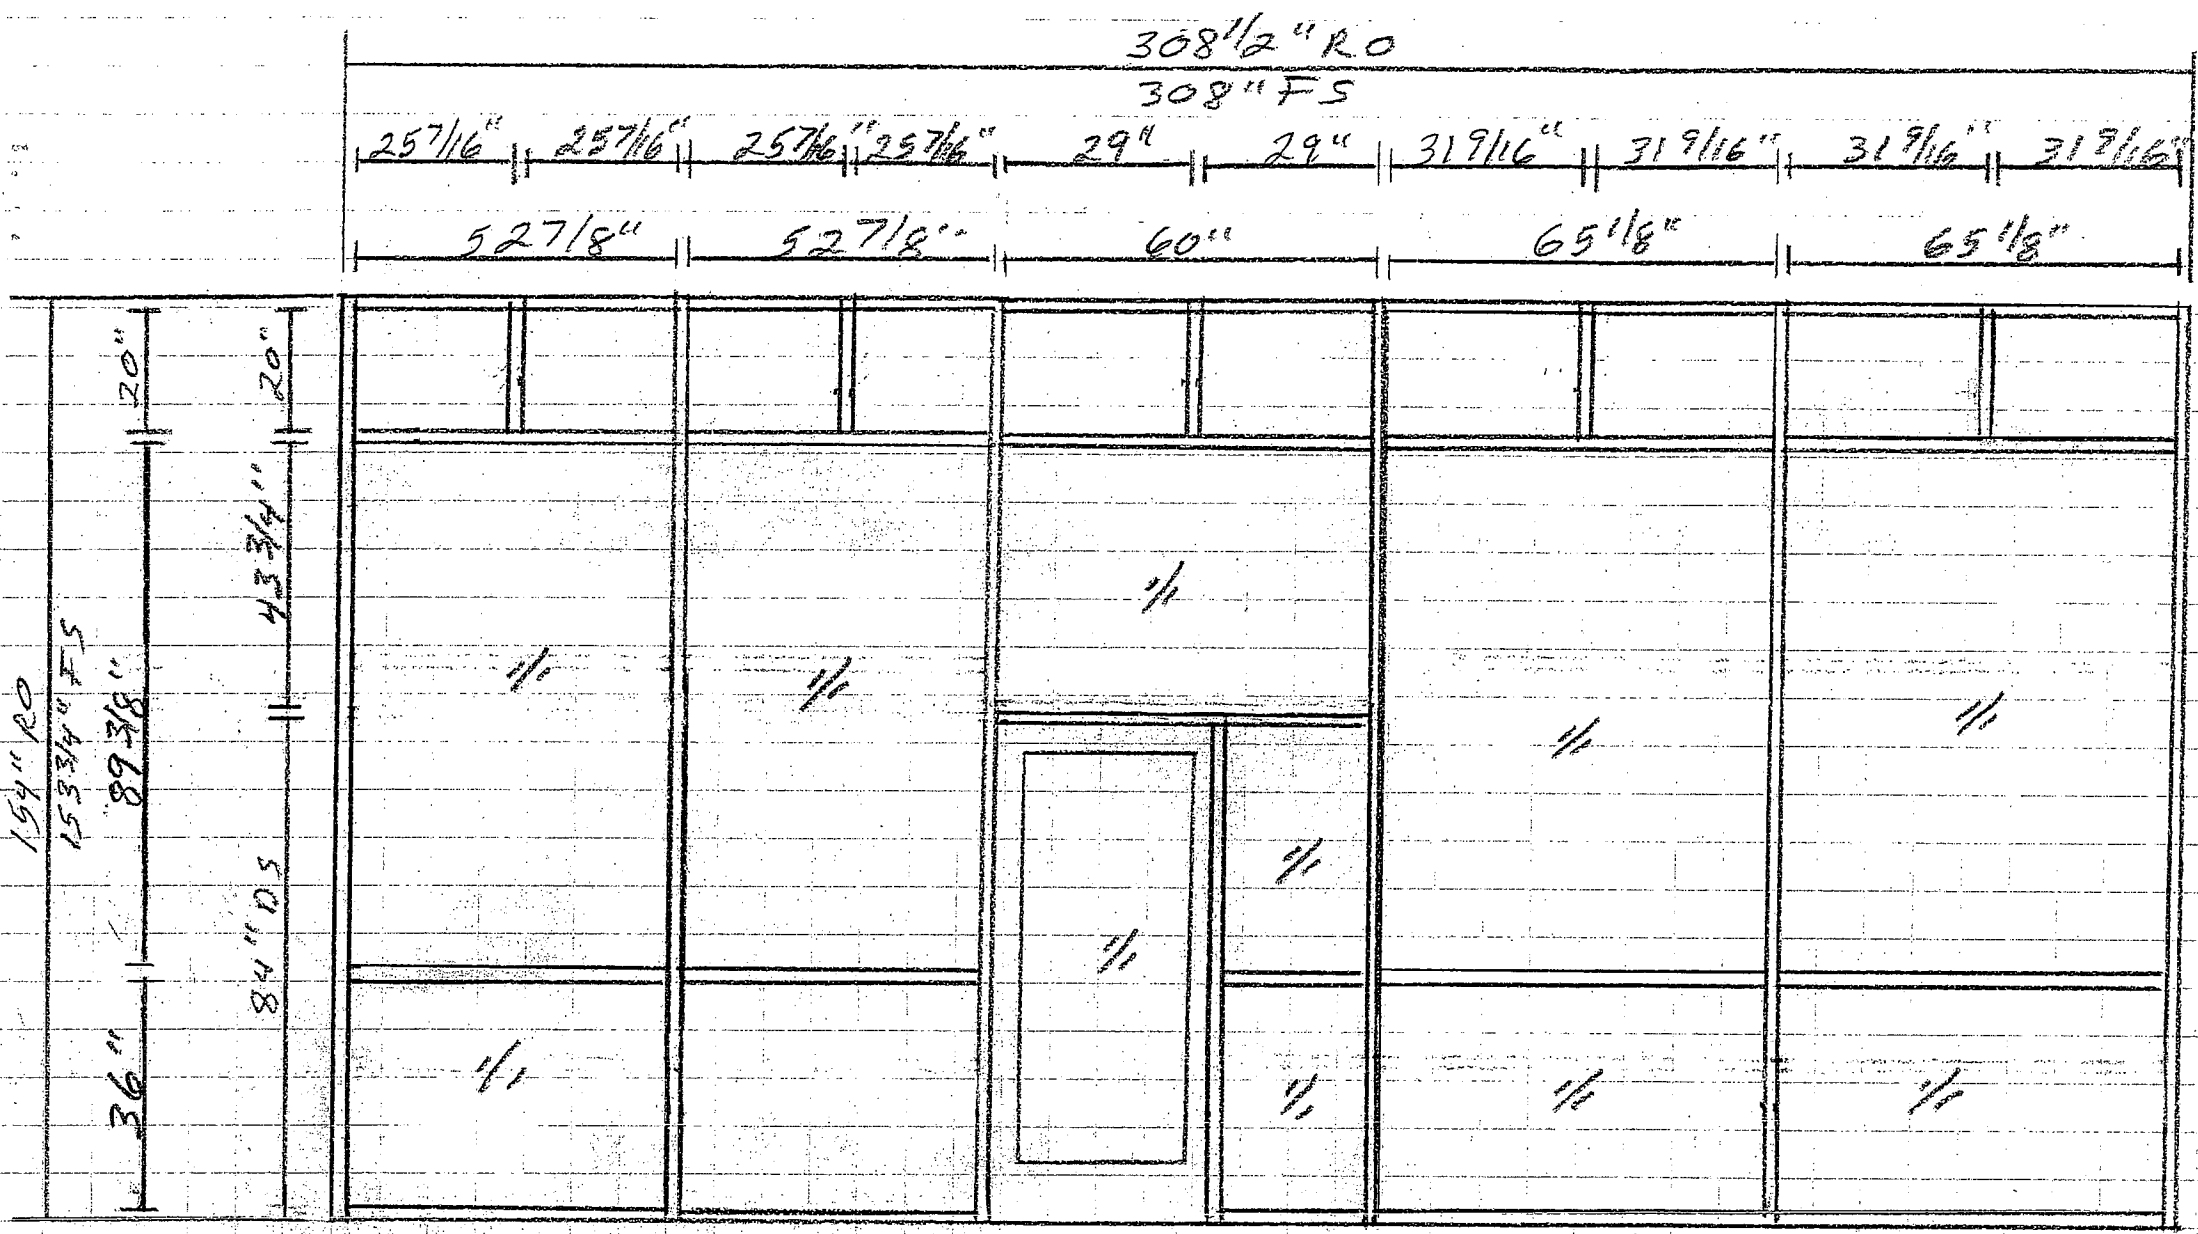 308 1/2" RO
308" FS
25 7/16" 25 7/16" 25 7/16" 25 7/16" 29" 29" 31 9/16" 31 9/16" 31 9/16" 31 9/16"
52 7/8" 52 7/8" 60" 65 1/8" 65 1/8"
154" RO
153 3/4" FS
20"
89 3/8"
36"
20"
43 3/4"
84" DS